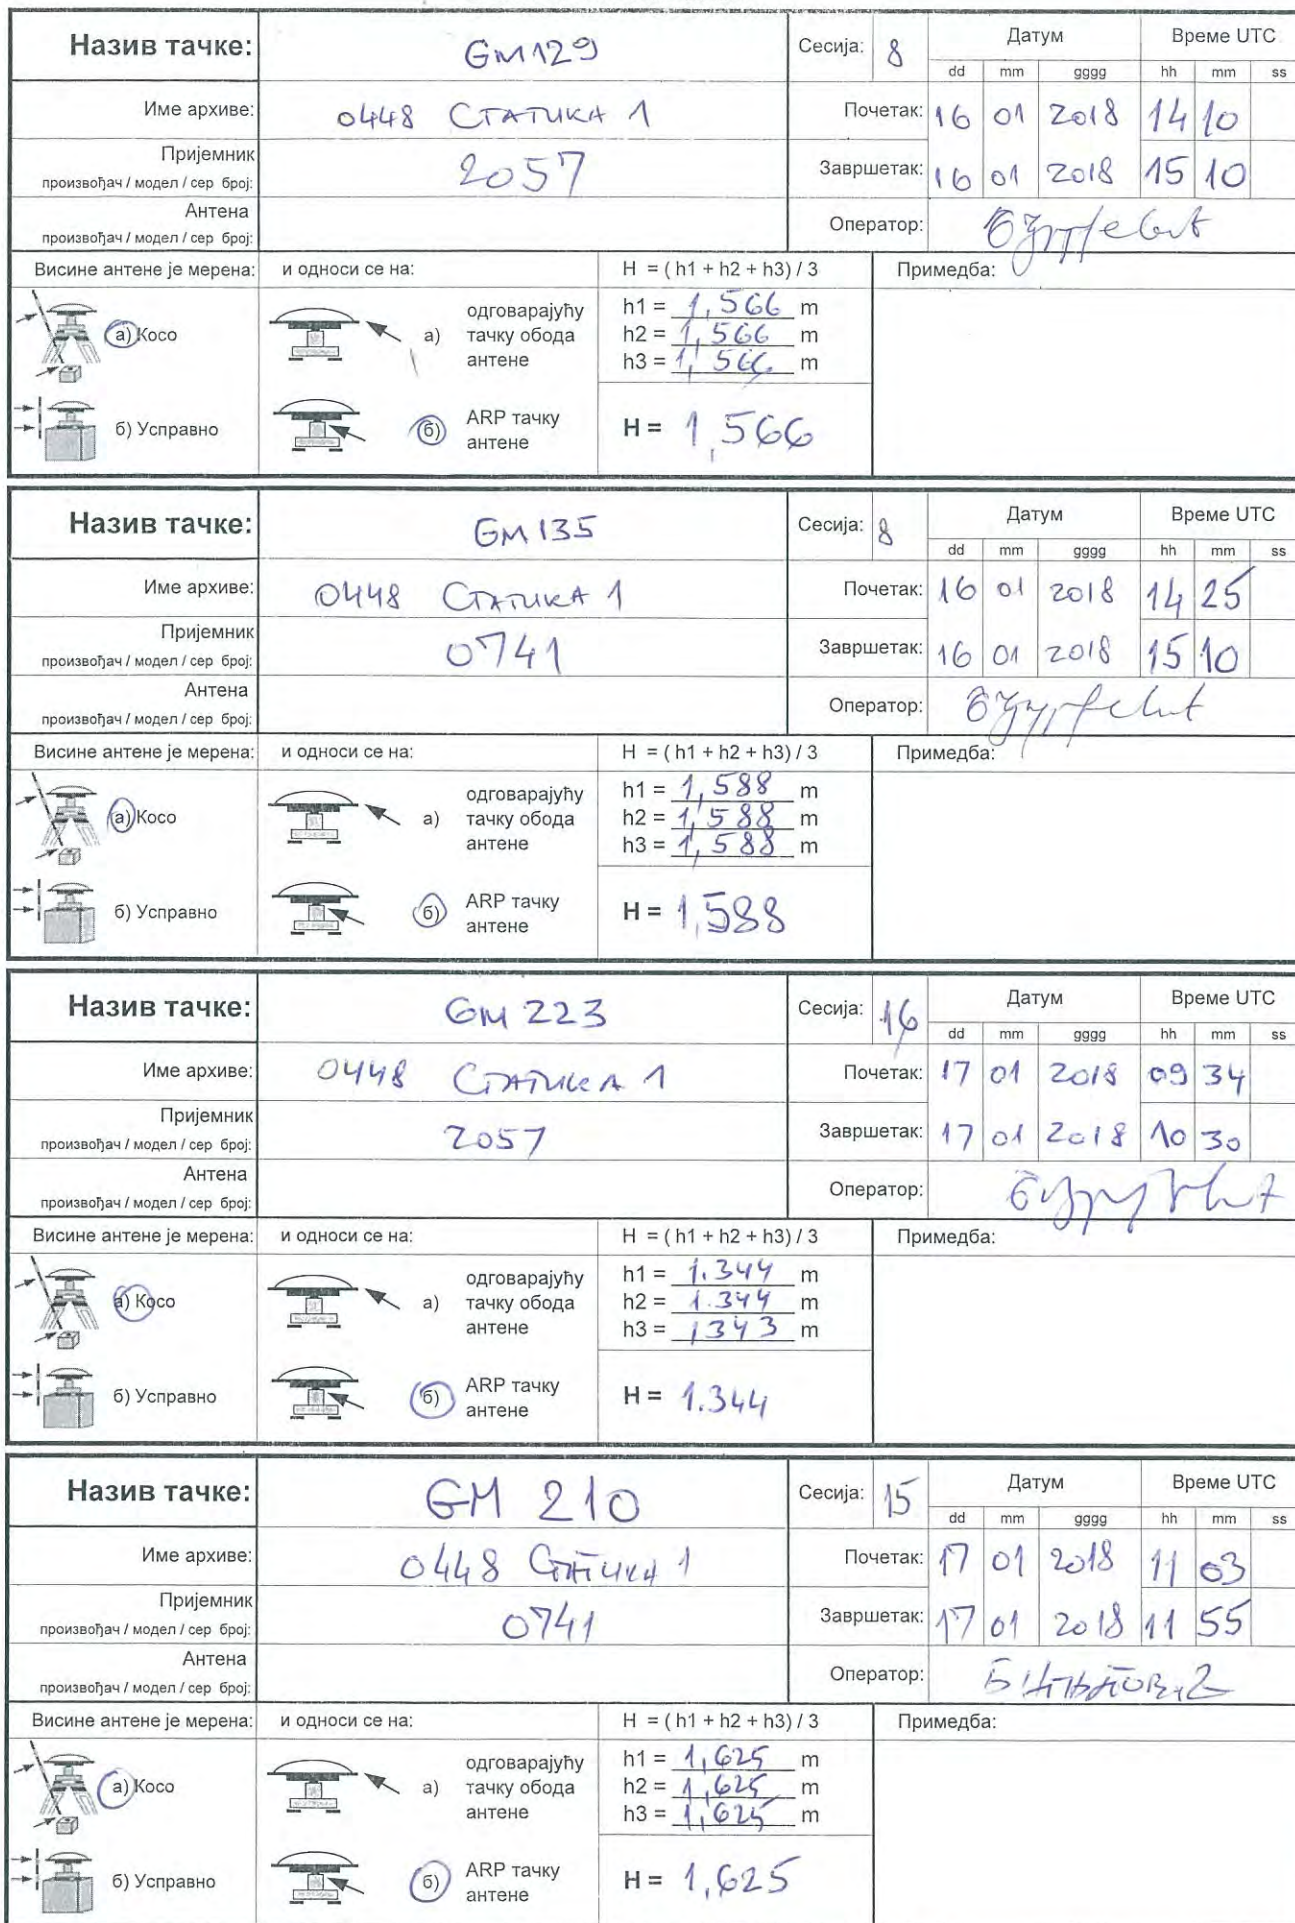 Назив тачке: GM129 Сесија: 8 Датум Време UTC
dd mm gggg hh mm ss
Име архиве: 0448 СТАТИКА 1 Почетак: 16 01 2018 14 10
Пријемник
произвођач / модел / сер број: 2057 Завршетак: 16 01 2018 15 10
Антена
произвођач / модел / сер број: Оператор:
Висине антене је мерена: и односи се на: H = ( h1 + h2 + h3 ) / 3 Примедба:
а) Косо а) одговарајућу тачку обода антене
h1 = 1,566 m
h2 = 1,566 m
h3 = 1,566 m
б) Усправно б) ARP тачку антене H = 1,566
Назив тачке: GM135 Сесија: 8 Датум Време UTC
dd mm gggg hh mm ss
Име архиве: 0448 СТАТИКА 1 Почетак: 16 01 2018 14 25
Пријемник
произвођач / модел / сер број: 0741 Завршетак: 16 01 2018 15 10
Антена
произвођач / модел / сер број: Оператор:
Висине антене је мерена: и односи се на: H = ( h1 + h2 + h3 ) / 3 Примедба:
а) Косо а) одговарајућу тачку обода антене
h1 = 1,588 m
h2 = 1,588 m
h3 = 1,588 m
б) Усправно б) ARP тачку антене H = 1,588
Назив тачке: GM 223 Сесија: 16 Датум Време UTC
dd mm gggg hh mm ss
Име архиве: 0448 СТАТИКА 1 Почетак: 17 01 2018 09 34
Пријемник
произвођач / модел / сер број: 2057 Завршетак: 17 01 2018 10 30
Антена
произвођач / модел / сер број: Оператор:
Висине антене је мерена: и односи се на: H = ( h1 + h2 + h3 ) / 3 Примедба:
а) Косо а) одговарајућу тачку обода антене
h1 = 1.344 m
h2 = 1.344 m
h3 = 1343 m
б) Усправно б) ARP тачку антене H = 1.344
Назив тачке: GM 210 Сесија: 15 Датум Време UTC
dd mm gggg hh mm ss
Име архиве: 0448 Статика 1 Почетак: 17 01 2018 11 03
Пријемник
произвођач / модел / сер број: 0741 Завршетак: 17 01 2018 11 55
Антена
произвођач / модел / сер број: Оператор:
Висине антене је мерена: и односи се на: H = ( h1 + h2 + h3 ) / 3 Примедба:
а) Косо а) одговарајућу тачку обода антене
h1 = 1,625 m
h2 = 1,625 m
h3 = 1,625 m
б) Усправно б) ARP тачку антене H = 1,625